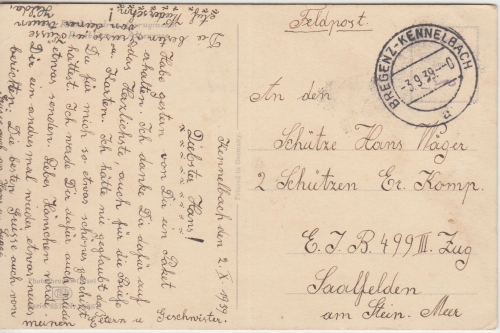 Feldpost.
BREGENZ-KENNELBACH
-3.9.39.--0
a
An den
Schütze Hans Wager
2 Schützen Er. Komp.
E. I. B. 499 III. Zug
Saalfelden
am Stein. Meer
Kennelbach den 2. X. 1939
Liebster Hans!
Habe gestern von Dir ein Paket
erhalten. Ich danke Dir dafür auf
das Herzlichste, auch für die Briefe
u. Karten. Ich hätte nie geglaubt das
Du für mich so etwas schönes geschickt
hättest. Ich werde Dir dafür auch wieder
etwas senden. Lieber Hanschen werde
Dir ein andres mal wieder etwas neues
berichten. Die besten Grüsse auch von meinen
Eltern u
Geschwister.
Die besten Grüsse
von deiner
treuen
Auf Wiedersehn!